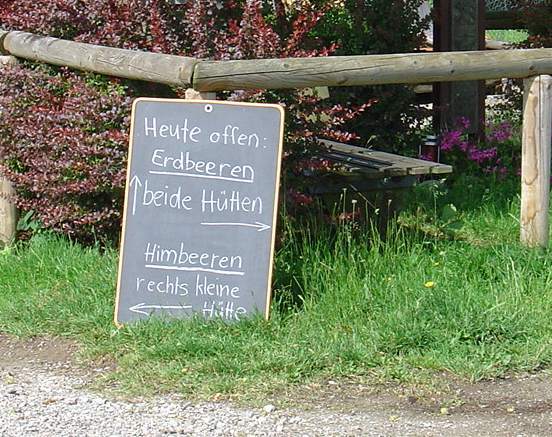 Heute offen:
Erdbeeren
beide Hütten
Himbeeren
rechts kleine
Hütte